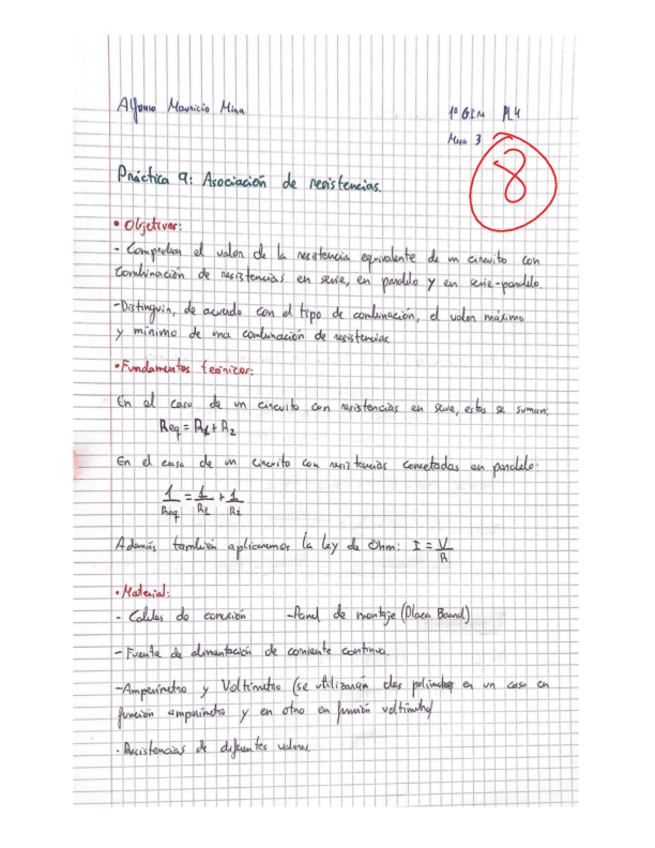 Alfonso Mauricio Mina
1º GIM PL4
Mesa 3
8
Práctica 9: Asociación de resistencias.
• Objetivos:
- Comprobar el valor de la resistencia equivalente de un circuito con
combinación de resistencias en serie, en paralelo y en serie-paralelo.
-Distinguir, de acuerdo con el tipo de combinación, el valor máximo
y mínimo de una combinación de resistencias
•Fundamentos teóricos:
En el caso de un circuito con resistencias en serie, estas se suman:
Req = R1 + R2
En el caso de un circuito con resistencias conectadas en paralelo:
1/Req = 1/R1 + 1/R2
Además también aplicaremos la ley de Ohm: I = V/R
• Material:
- Cables de conexión -Panel de montaje (Placa Board)
- Fuente de alimentación de corriente continua.
-Amperímetro y Voltímetro (se utilizarán dos polímetros en un caso en
función amperímetro y en otro en función voltímetro)
- Resistencias de diferentes valores.